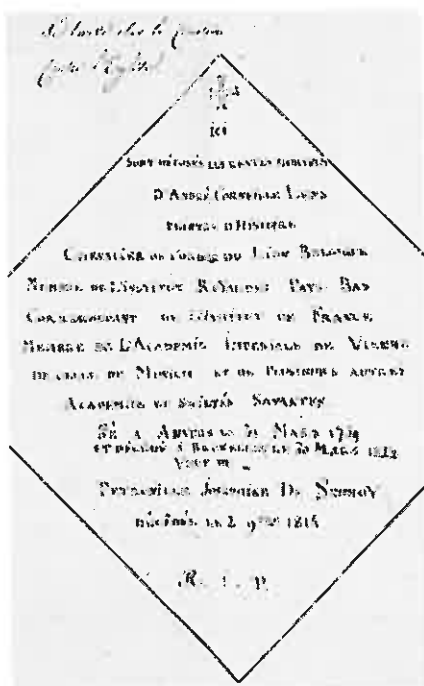 ICI
SONT DÉPOSÉS LES RESTES MORTELS
D'ANDRÉ CORNEILLE LENS
PEINTRE D'HISTOIRE
CHEVALIER DE L'ORDRE DU LION BELGIQUE
MEMBRE DE L'INSTITUT ROYAL DES PAYS BAS
CORRESPONDANT DE L'INSTITUT DE FRANCE
MEMBRE DE L'ACADÉMIE IMPERIALE DE VIENNE
DE CELLE DE MUNICH ET DE PLUSIEURS AUTRES
ACADEMIES ET SOCIÉTÉS SAVANTES
NÉ A ANVERS LE 31 MARS
ET DÉCÉDÉ À BRUXELLES LE 30 MARS 1822
VEUF DE
JOSEPHINE DE
DÉCÉDÉE LE 2 9bre 1815
R. I. P.